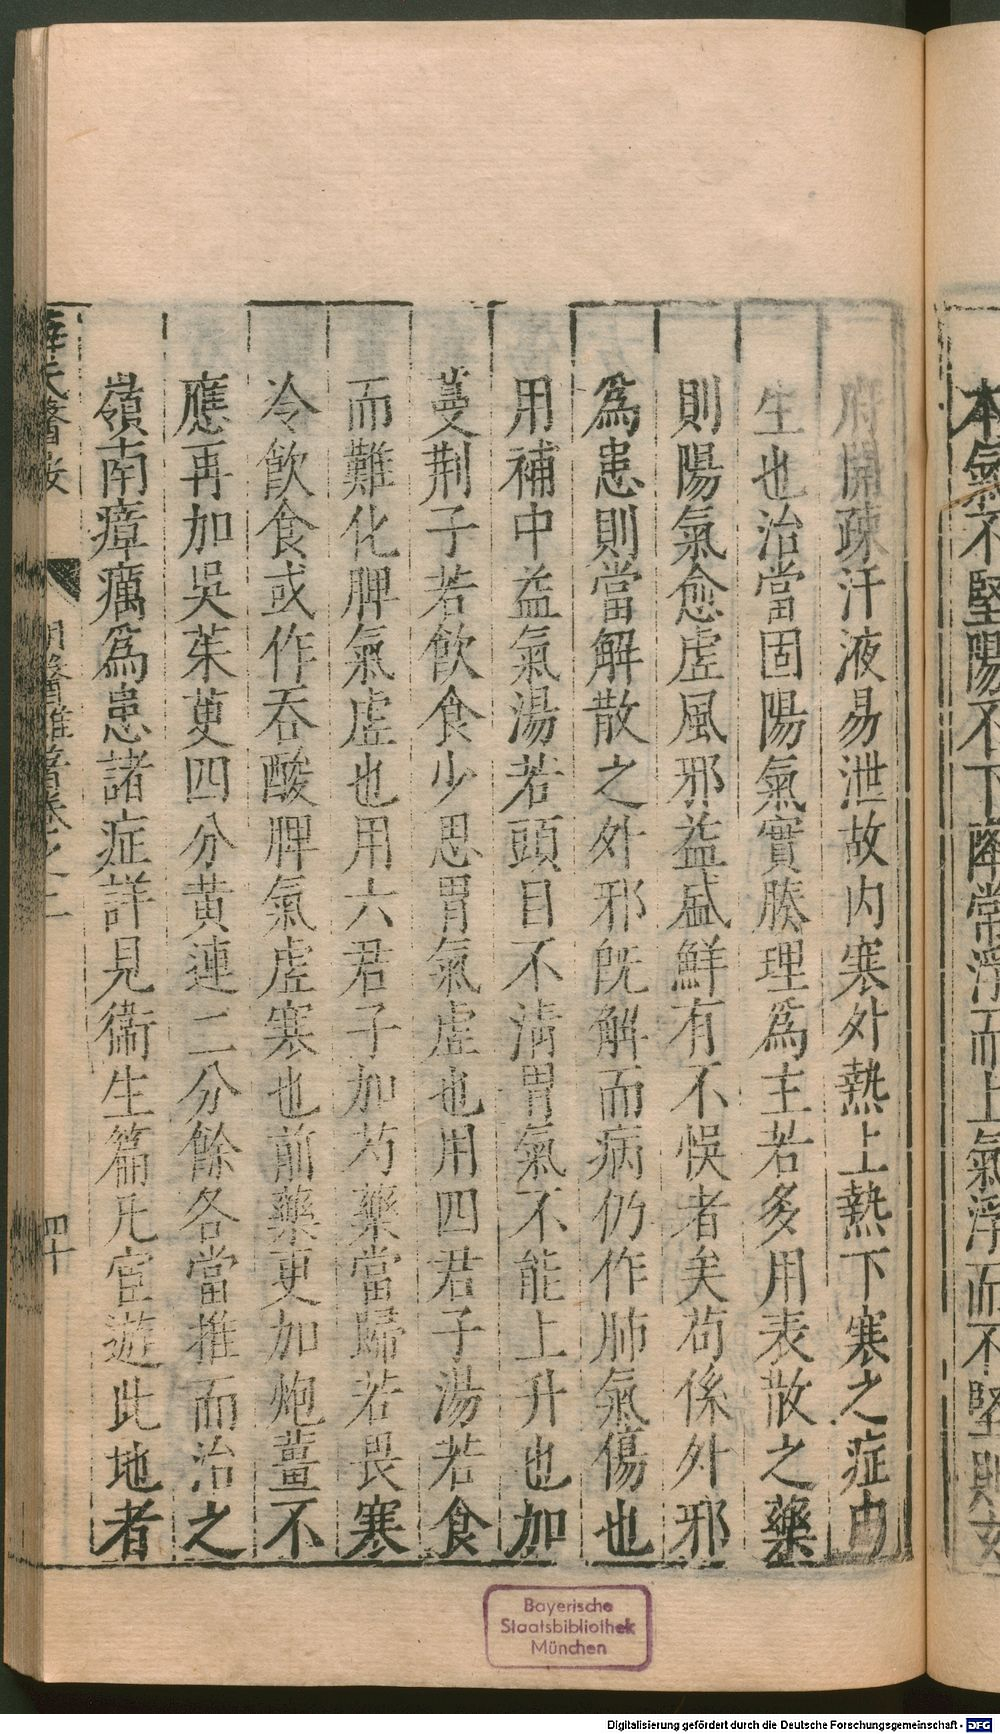 本氣不堅陽不下陰常浮而上氣浮而不堅則
府開疎汗液易泄故内寒外熱上熱下寒之症由
生也治當固陽氣實腠理爲主若多用表散之藥
則陽氣愈虛風邪益盛鮮有不悞者矣苟係外邪
爲患則當解散之外邪旣解而病仍作肺氣傷也
用補中益氣湯若頭目不清胃氣不能上升也加
蔓荆子若飲食少思胃氣虛也用四君子湯若食
而難化脾氣虛也用六君子加芍藥當歸若畏寒
冷飲食或作吞酸脾氣虛寒也前藥更加炮薑不
應再加吳茱萸四分黄連二分餘各當推而治之
嶺南瘴癘爲患諸症詳見衞生篇凡宦遊此地者
薛氏醫按 明醫雜著卷之二 四十
Bayerische
Staatsbibliothek
München
Digitalisierung gefördert durch die Deutsche Forschungsgemeinschaft - DFG